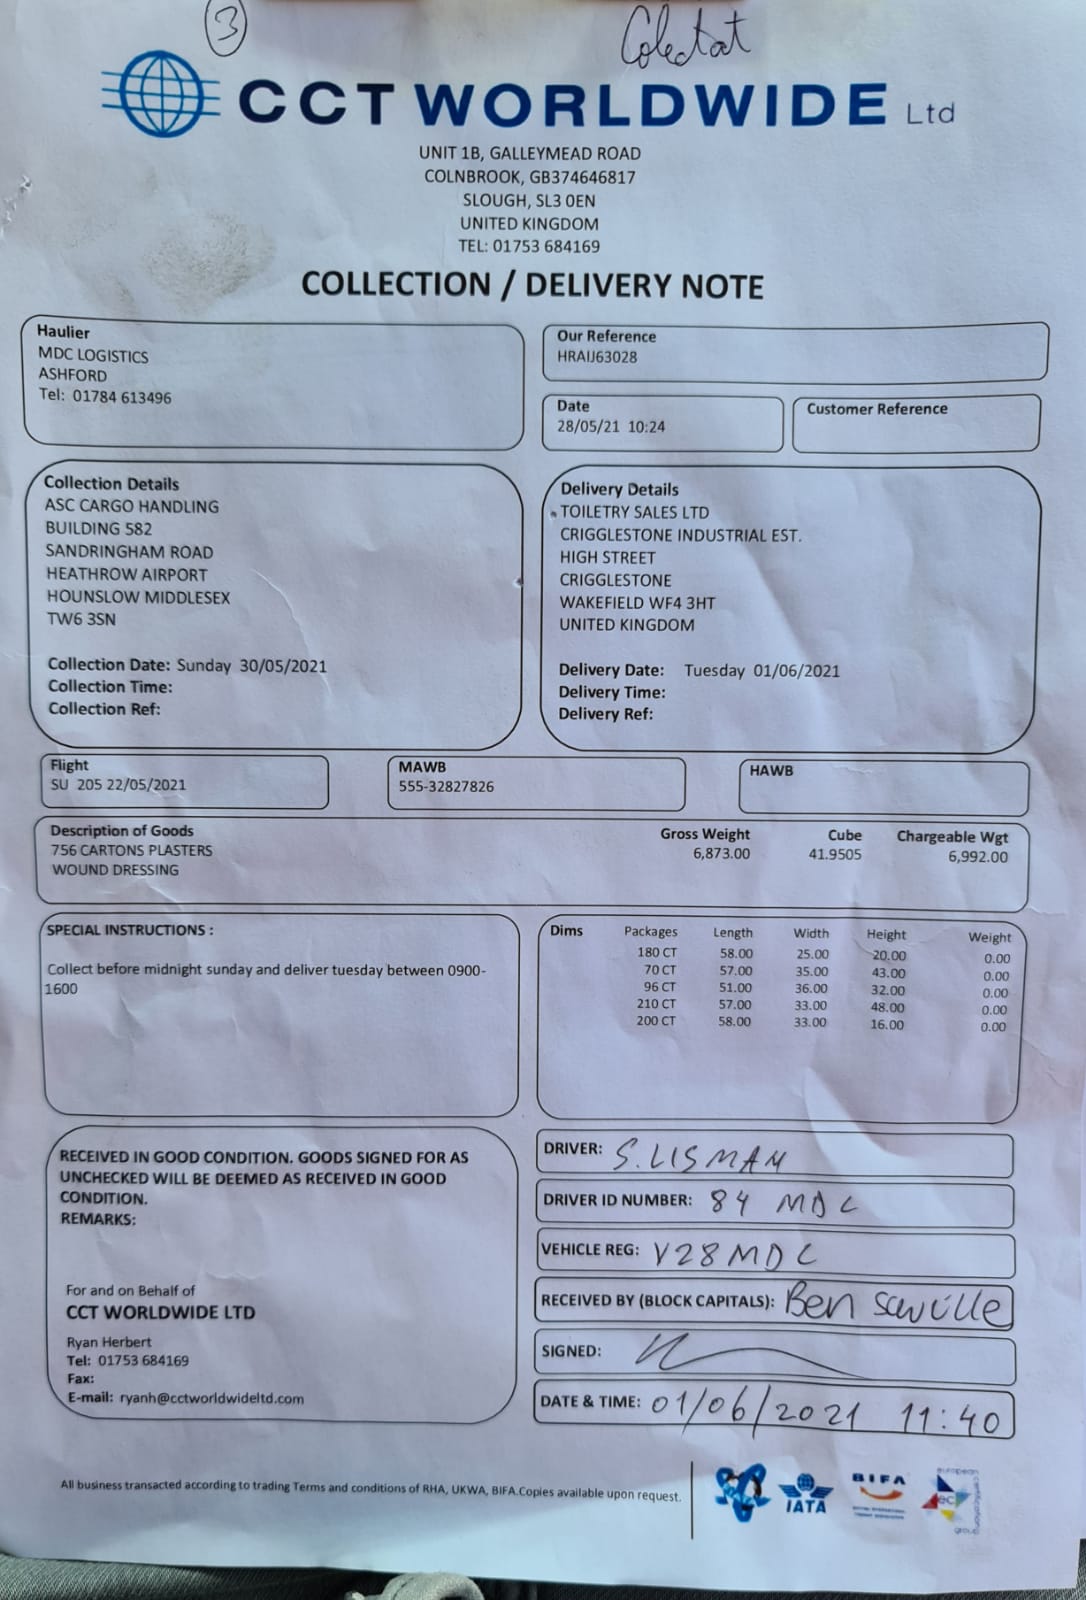 3
CCT WORLDWIDE Ltd
UNIT 1B, GALLEYMEAD ROAD
COLNBROOK, GB374646817
SLOUGH, SL3 0EN
UNITED KINGDOM
TEL: 01753 684169
COLLECTION / DELIVERY NOTE
Haulier
MDC LOGISTICS
ASHFORD
Tel: 01784 613496
Our Reference
HRAIJ63028
Date
28/05/21 10:24
Customer Reference
Collection Details
ASC CARGO HANDLING
BUILDING 582
SANDRINGHAM ROAD
HEATHROW AIRPORT
HOUNSLOW MIDDLESEX
TW6 3SN
Collection Date: Sunday 30/05/2021
Collection Time:
Collection Ref:
Delivery Details
TOILETRY SALES LTD
CRIGGLESTONE INDUSTRIAL EST.
HIGH STREET
CRIGGLESTONE
WAKEFIELD WF4 3HT
UNITED KINGDOM
Delivery Date: Tuesday 01/06/2021
Delivery Time:
Delivery Ref:
Flight
SU 205 22/05/2021
MAWB
555-32827826
HAWB
Description of Goods Gross Weight Cube Chargeable Wgt
756 CARTONS PLASTERS 6,873.00 41.9505 6,992.00
WOUND DRESSING
SPECIAL INSTRUCTIONS :
Collect before midnight sunday and deliver tuesday between 0900-
1600
Dims Packages Length Width Height Weight
180 CT 58.00 25.00 20.00 0.00
70 CT 57.00 35.00 43.00 0.00
96 CT 51.00 36.00 32.00 0.00
210 CT 57.00 33.00 48.00 0.00
200 CT 58.00 33.00 16.00 0.00
RECEIVED IN GOOD CONDITION. GOODS SIGNED FOR AS
UNCHECKED WILL BE DEEMED AS RECEIVED IN GOOD
CONDITION.
REMARKS:
For and on Behalf of
CCT WORLDWIDE LTD
Ryan Herbert
Tel: 01753 684169
Fax:
E-mail: ryanh@cctworldwideltd.com
DRIVER: S.LISMAN
DRIVER ID NUMBER: 84 MDC
VEHICLE REG: V28MDC
RECEIVED BY (BLOCK CAPITALS): Ben Saville
SIGNED:
DATE & TIME: 01/06/2021 11:40
All business transacted according to trading Terms and conditions of RHA, UKWA, BIFA.Copies available upon request.
IATA
BIFA
european
ec
certification
group